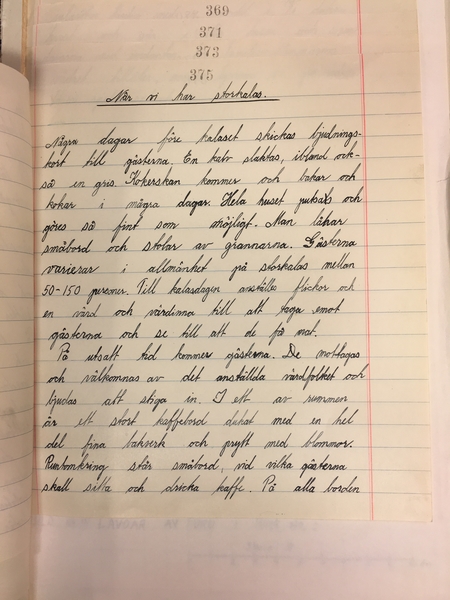 369
371
373
375
När vi har storkalas.
Några dagar före kalaset skickas bjudnings-
kort till gästerna. En kalv slaktas, ibland ock-
så en gris. Kokerskan kommer och bakar och
kokar i många dagar. Hela huset putsas och
göres så fint som möjligt. Man lånar
småbord och stolar av grannarna. Gästerna
varierar i allmänhet på storkalas mellan
50-150 personer. Till kalasdagen anställes flickor och
en värd och värdinna till att taga emot
gästerna och se till att de få mat.
På utsatt tid kommer gästerna. De mottagas
och välkomnas av det anställda värdfolket och
bjudas att stiga in. I ett av rummen
är ett stort kaffebord dukat med en hel
del fina bakverk och prytt med blommor.
Runtomkring står småbord, vid vilka gästerna
skall sitta och dricka kaffe. På alla borden